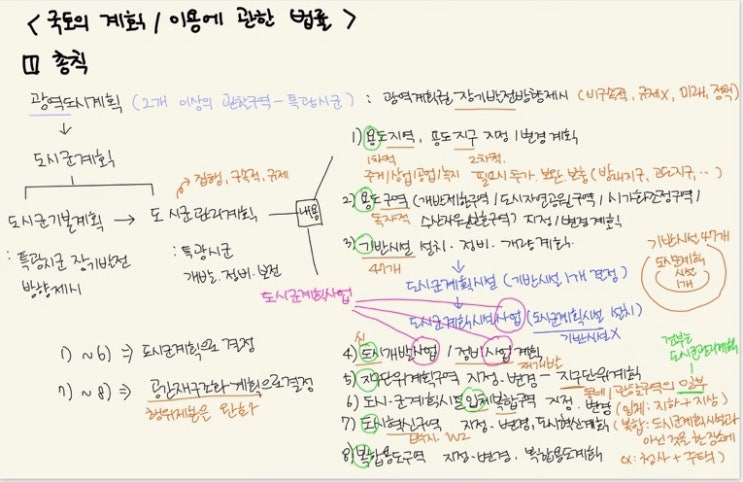 < 국토의 계획 / 이용에 관한 법률 >
1 총칙
광역도시계획 (2개 이상의 관할구역 - 특광시군) : 광역계획권 장기발전방향제시 (비구속적, 규제X, 미래, 정책)
도시군계획
1) 용도지역, 용도지구 지정/변경계획
1차적 2차적
주거/상업/공업/녹지 필요시 추가, 보완, 보충 (방재지구, 경관지구, ··)
집행, 구속적, 규제
도시군기본계획 → 도시군관리계획 내용
: 특광시군 장기발전
방향제시
: 특광시군
개발·정비·보전
2) 용도구역 (개발제한구역 / 도시자연공원구역 / 시가화조정구역 /
독자적 수산자원보호구역) 지정/변경계획
3) 기반시설 설치·정비·개량계획
47개
기반시설 47개
도시군계획
시설
1개
도시군계획시설 (기반시설 1개 결정)
도시군계획사업
도시군계획시설사업 (도시군계획시설 설치)
기반시설X
1) ~ 6) ⇒ 도시군계획으로 결정
7) ~ 8) ⇒ 공간재구조화계획으로 결정
4) 도시개발사업 / 정비사업계획
재개발
전부는
도시군관리계획
5) 지구단위계획구역 지정·변경 - 지구단위계획
관할구역의 일부
6) 도시·군계획시설입체복합구역 지정·변경 (입체: 지하+지상)
7) 도시혁신구역 지정·변경, 도시혁신계획 (복합: 도시군계획시설과
아닌 것을 한 장소에
8) 복합용도구역 지정·변경, 복합용도계획 ex: 청사 + 주택)